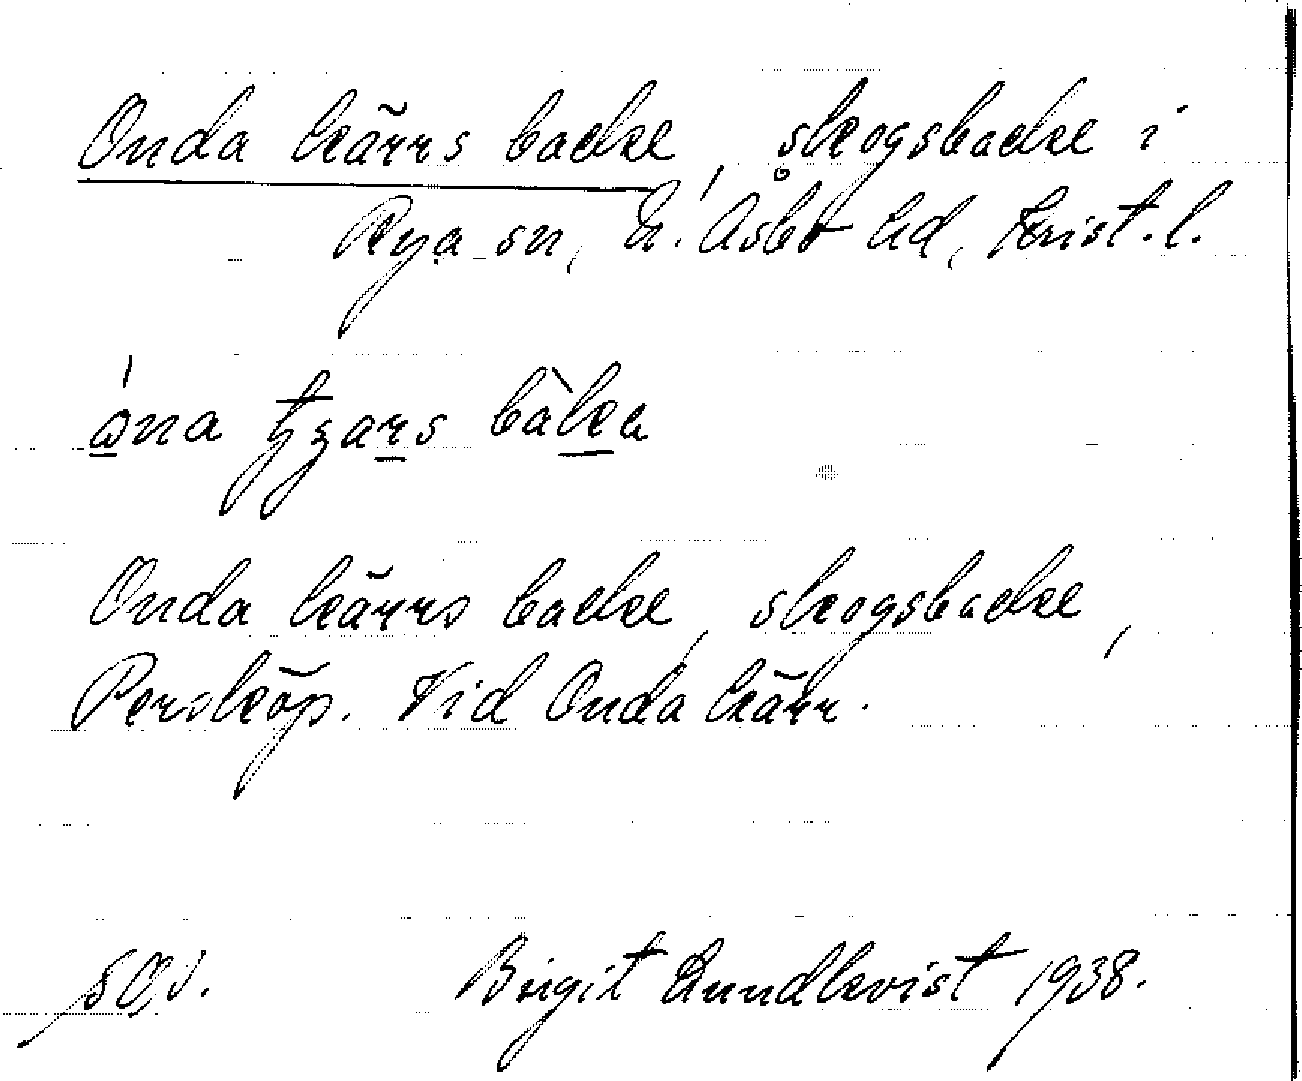 Onda kärrs backe, skogsbacke i
Rya sn, N. Åsbo hd, Krist. l.
Onda kärrs backe, skogsbacke,
Persköp. Vid Onda kärr.
Birgit Lundkvist 1938.